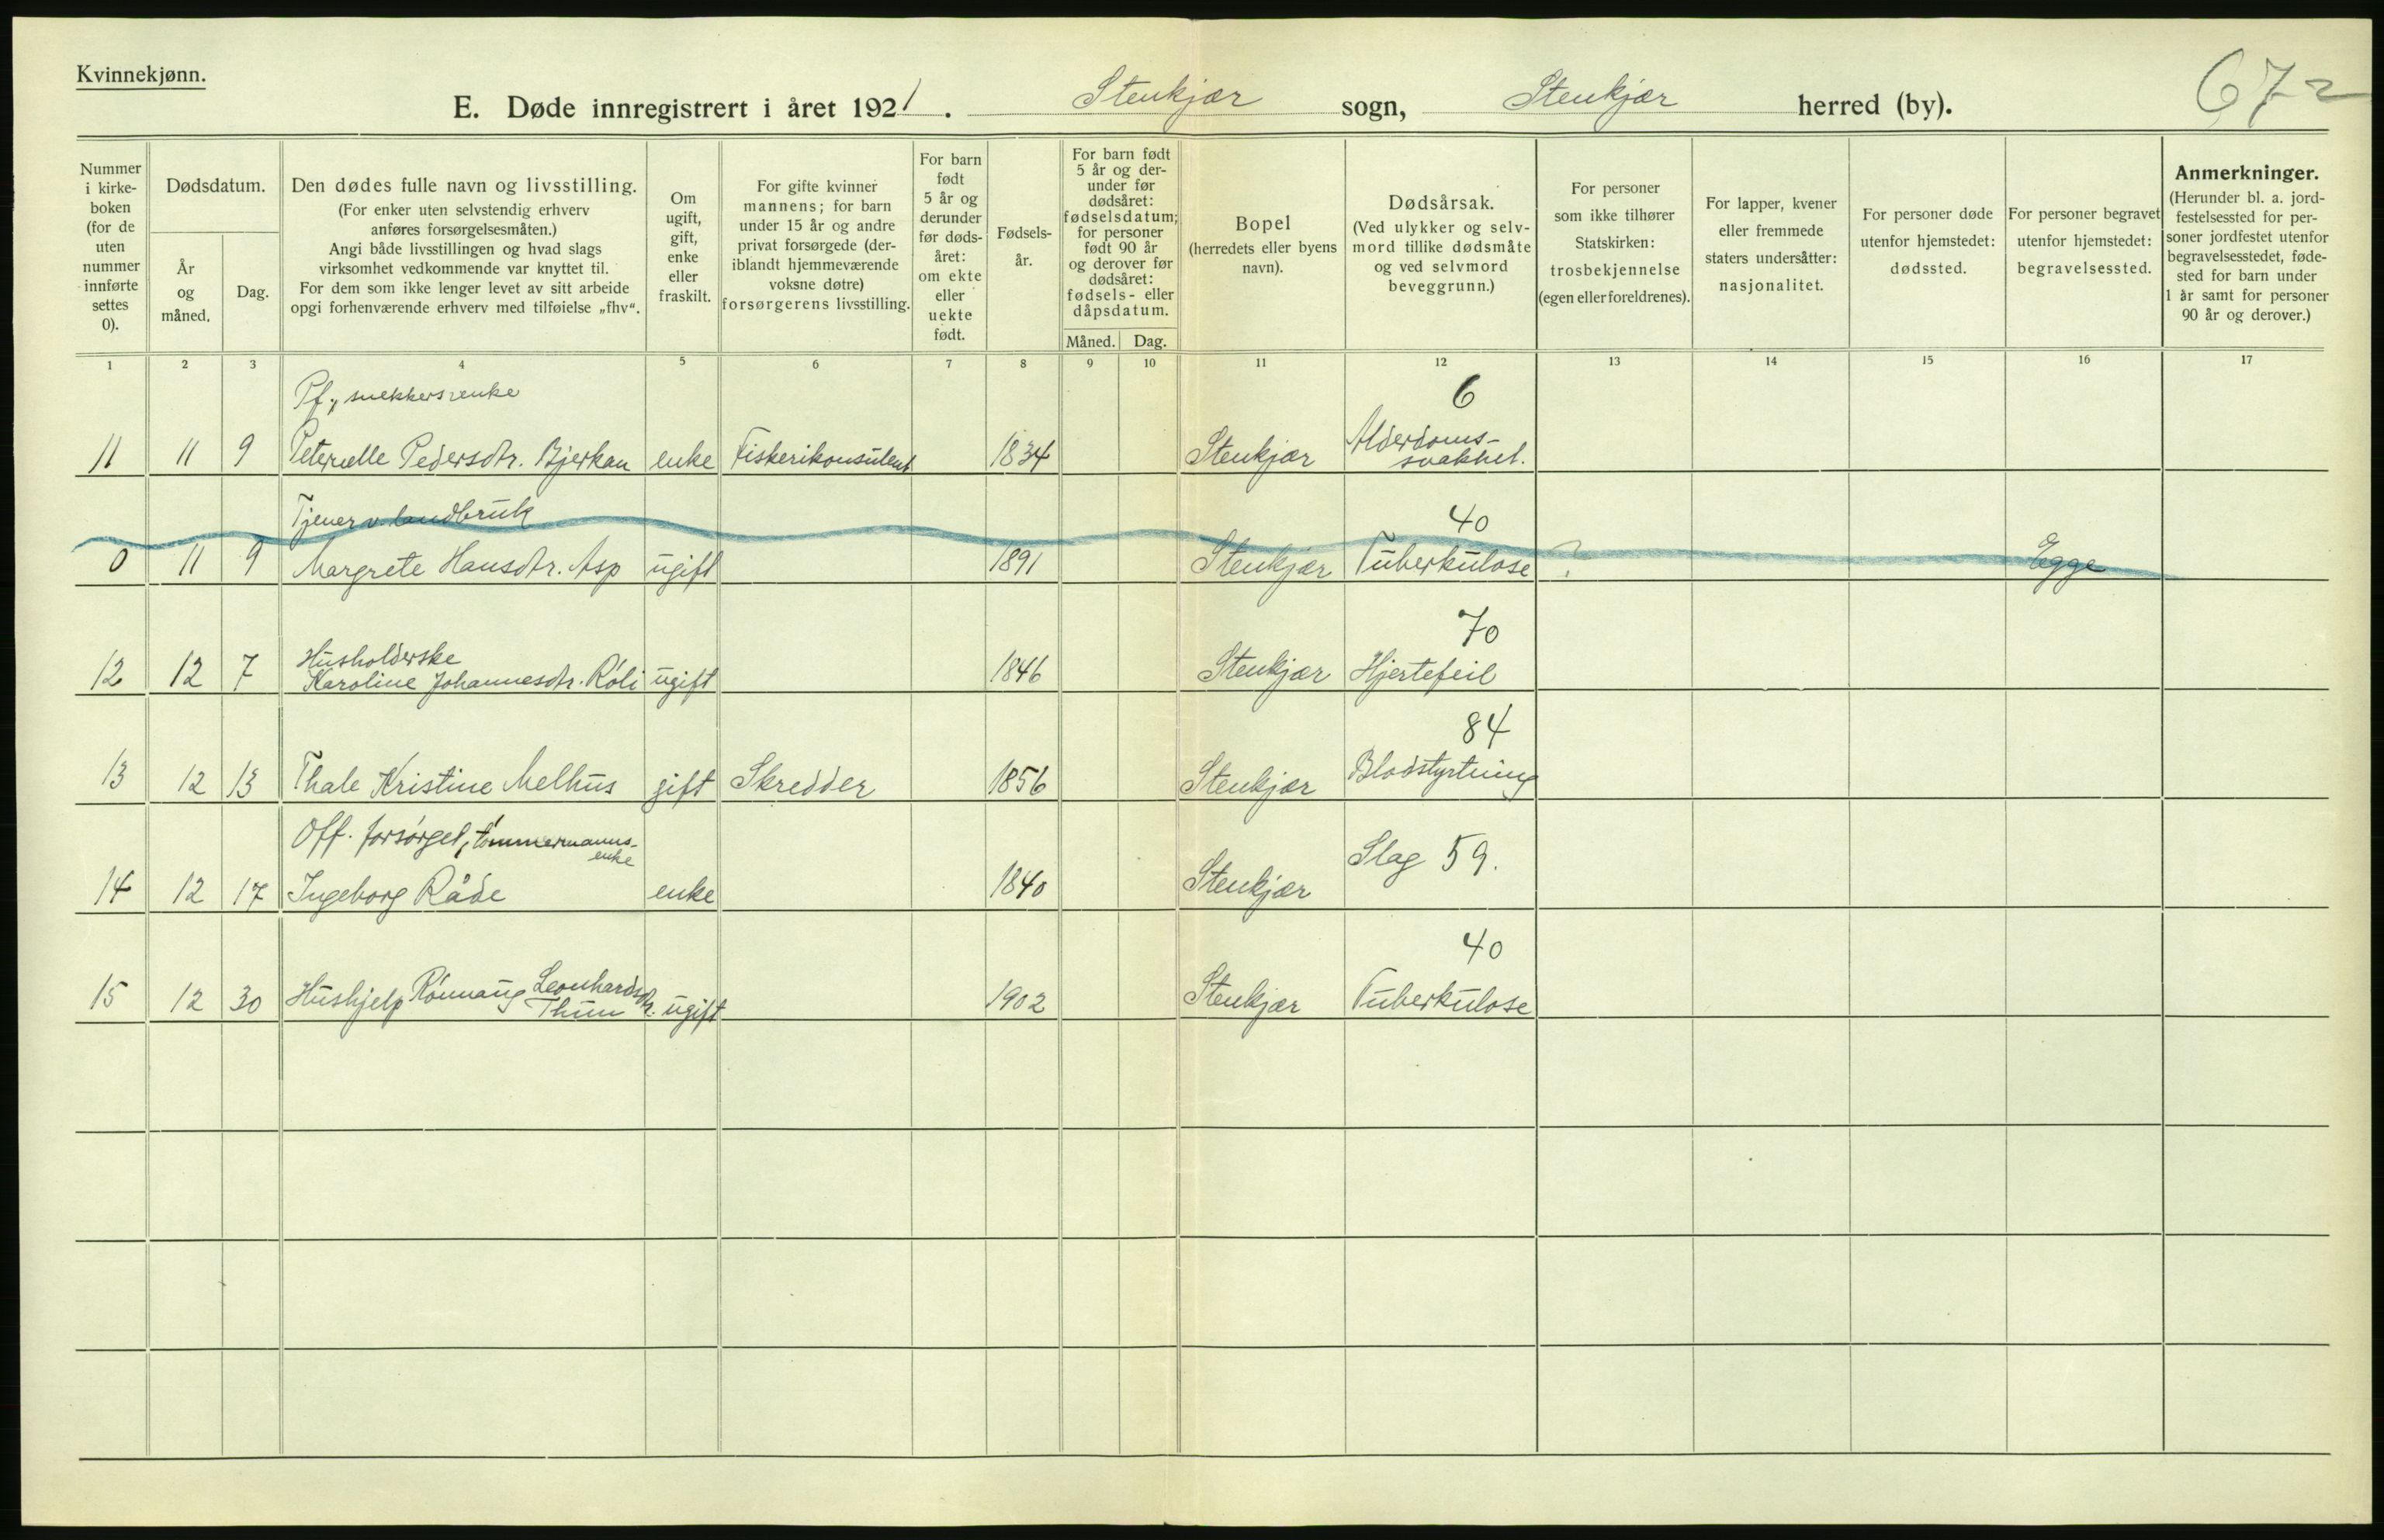 Kvinnekjønn.
E. Døde innregistrert i året 1921. Stenkjær sogn, Stenkjær herred (by).
672
Nummer i kirke- boken (for de uten nummer innførte settes 0).
Dødsdatum.
År og måned.
Dag.
Den dødes fulle navn og livsstilling.
(For enker uten selvstendig erhverv
anføres forsørgelsesmåten.)
Angi både livsstillingen og hvad slags
virksomhet vedkommende var knyttet til.
For dem som ikke lenger levet av sitt arbeide
opgi forhenværende erhverv med tilføielse „fhv“.
Om ugift, gift, enke eller fraskilt.
For gifte kvinner
mannens; for barn
under 15 år og andre
privat forsørgede (der-
iblandt hjemmeværende
voksne døtre)
forsørgerens livsstilling.
For barn født 5 år og derunder før døds- året: om ekte eller uekte født.
Fødsels- år.
For barn født
5 år og der-
under før
dødsåret:
fødselsdatum;
for personer
født 90 år
og derover før
dødsåret:
fødsels- eller
dåpsdatum.
Måned. Dag.
Bopel
(herredets eller byens
navn).
Dødsårsak.
(Ved ulykker og selv-
mord tillike dødsmåte
og ved selvmord
beveggrunn.)
For personer
som ikke tilhører
Statskirken:
trosbekjennelse
(egen eller foreldrenes).
For lapper, kvener
eller fremmede
staters undersåtter:
nasjonalitet.
For personer døde
utenfor hjemstedet:
dødssted.
For personer begravet
utenfor hjemstedet:
begravelsessted.
Anmerkninger.
(Herunder bl. a. jord-
festelsessted for per-
soner jordfestet utenfor
begravelsesstedet, føde-
sted for barn under
1 år samt for personer
90 år og derover.)
1 2 3 4 5 6 7 8 9 10 11 12 13 14 15 16 17
Pf., snekkersenke 6
11 11 9 Peternelle Pedersdtr. Bjerkan enke Fiskerikonsulent 1834 Stenkjær Alderdoms-
svakhet.
Tjener v. landbruk 40
0 11 9 Margrete Hansdtr. Asp ugift 1891 Stenkjær Tuberkulose ? Egge
70
Husholderske
12 12 7 Karoline Johannesdtr. Róli ugift 1846 Stenkjær Hjertefeil
84
13 12 13 Thale Kristine Melhus gift Skredder 1856 Stenkjær Blodstyrtning
Off. forsórget, tómmermanns-
enke
14 12 17 Ingeborg Råde enke 1840 Stenkjær Slag 59.
40
15 12 30 Hushjelp Rónnaug Leonhardsdtr. Thun ugift 1902 Stenkjær Tuberkulose